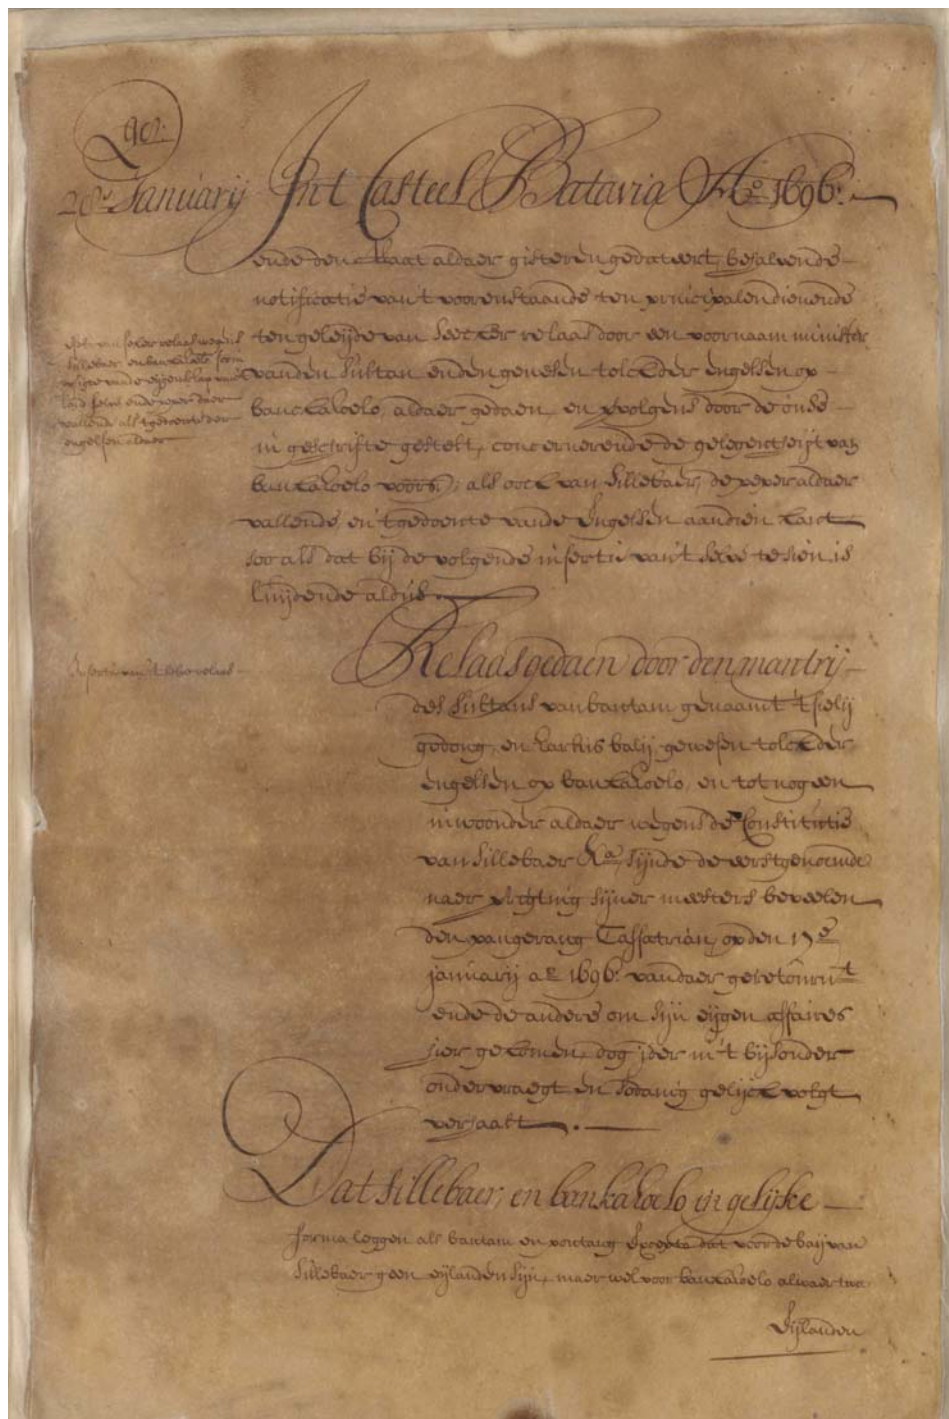 28 Januarij Int Casteel Batavia Ao 1696:
ende den raat aldaer gisteren gedateert, behalvende
notificatie van 't voorenstaande ten principalen dienende
ten geleijde van seecker relaas door een voornaam minister
vanden sultan ende gewesen tolck der engelsen op
bancahoelo, aldaer gedaen, en vervolgens door de onse
in geschrifte gestelt, concernerende de gelegentheijt van
bancahoelo voors:, als oock van Sillebaer, de peper aldaer
vallende, en 't gedoente vande Engelsen aan die cant
soo als dat bij de volgende insertie van 't selve te sien is
luijdende aldus
Insertie van 't selve relaas
Relaas gedaen door den mantrij
des sultans van bantam genaamt 't sielij
gedong, en Larkis balij gewesen tolck der
engelsen op bancahoelo, en tot nog een
inwoonder aldaer wegens de Constitutie
van Sillebaer &a, sijnde de eerstgenoemde
naer verrigting sijner meesters bevelen
den pangerang Cassatrian, op den 17e
januarij ao 1696: van daer geretournt
ende de andere om sijn eijgen affaires
hier gekomen, dog ider in 't bijsonder
ondervraegt en sodanig gelijck volgt
verhaalt
Dat sillebaer, en bankahoelo in gelijcke
forma leggen als bantam en pontang Excepto dat voor de baij van
Sillebaer geen eijlanden sijn, maer wel voor bancahoelo alwaer twee
Eijlanden